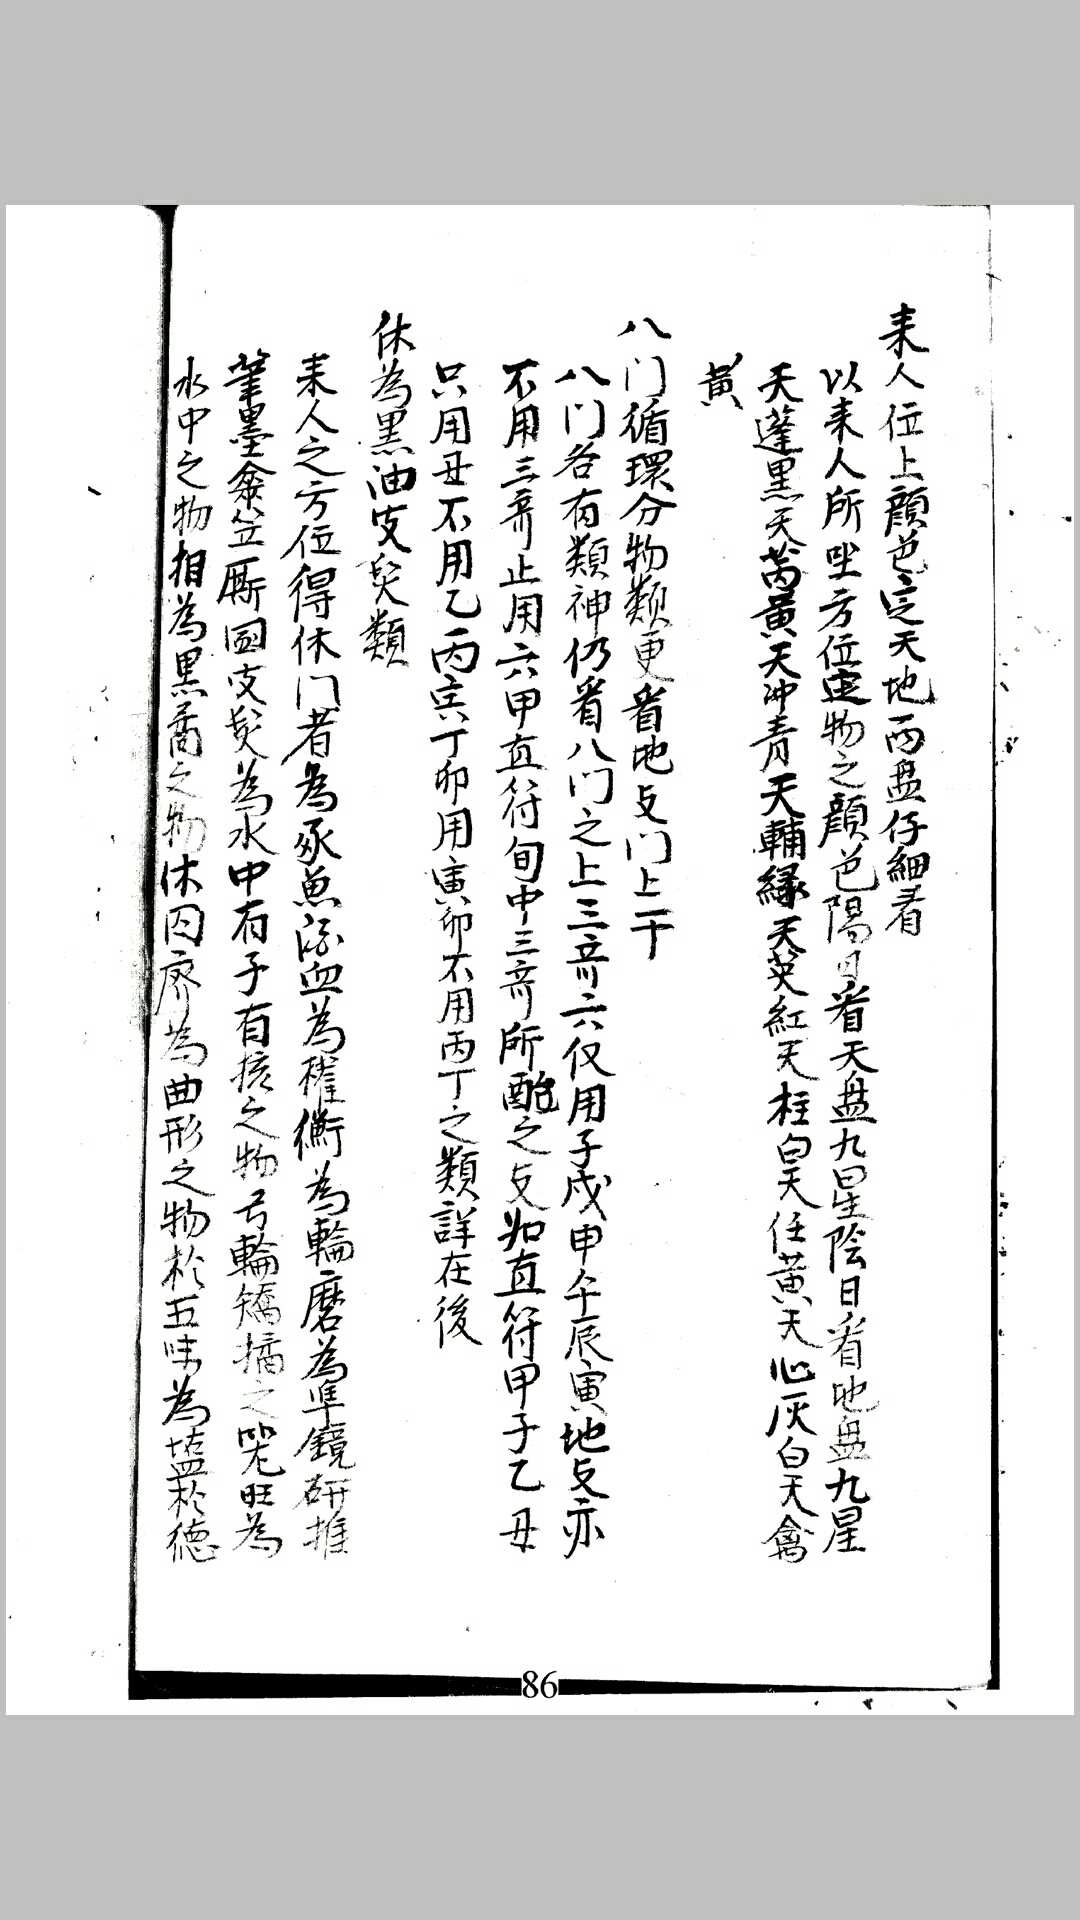 来人位上顔色定天地両盘仔細看
以来人所坐方位定物之顔色陽日看天盘九星陰日看地盘九星
天蓬黒天芮黄天冲青天輔緑天英紅天柱白天任黄天心灰白天禽
黄
八门循環分物類更看地支门上干
八门各有類神仍看八门之上三竒六仪用子戌申午辰寅地支亦
不用三竒止用六甲直符旬中三竒所配之支如直符甲子乙丑
只用丑不用乙丙寅丁卯用寅卯不用丙丁之類詳在後
休為黒油皮髮類
来人之方位得休门者為豕魚豕血為權衡為輪磨為準鏡研推
筆墨傘笠厮圊皮髮為水中有子有核之物弓輪矯揉之物旺為
水中之物相為黒喬之物休囚廢為曲形之物於五味為塩於德
86